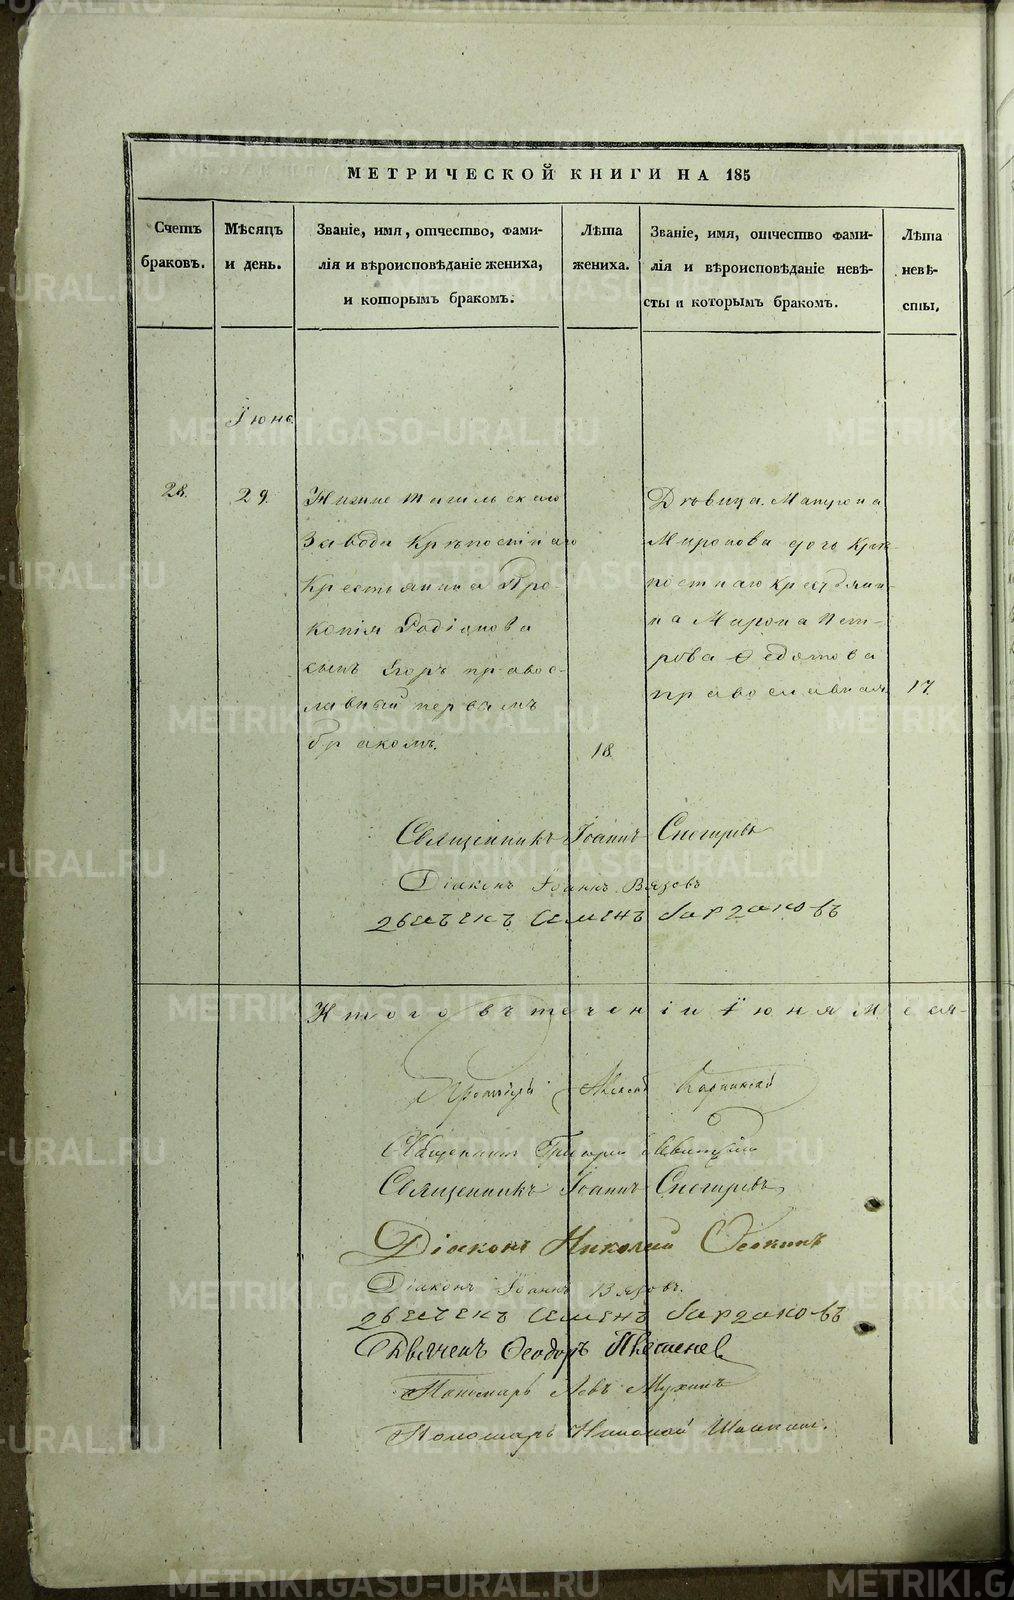 МЕТРИЧЕСКОЙ КНИГИ НА 185
Счетъ браковъ.
Мѣсяцъ и день.
Званіе, имя, отчество, фами-
лія и вѣроисповѣданіе жениха,
и которымъ бракомъ.
Лѣта жениха.
Званіе, имя, отчество фами-
лія и вѣроисповѣданіе невѣ-
сты и которымъ бракомъ.
Лѣта
невѣ-
сты,
Іюнь
28.
29.
Нижне Тагильскаго
завода крѣпостнаго
крестьянина Про-
копія Родіонова
сынъ Егоръ правос-
лавный первымъ
бракомъ.
18.
Дѣвица
Миронова дочь крѣ-
постнаго крестьяни-
на Мирона Пет-
рова Федотова
православная
17.
Священникъ Іоаннъ Снегиревъ
Діаконъ Іоаннъ Вязовъ
Семенъ
Итого въ теченіи Іюня меся-
Протоіерей Карпинскій
Священникъ Григорій
Священникъ Іоаннъ Снегиревъ
Діаконъ Николай Осокинъ
Діаконъ Іоаннъ Вязовъ.
Семенъ
Дьячекъ Ѳеодоръ
Пономарь Левъ Мухинъ
Пономарь Николай
METRIKI.GASO-URAL.RU